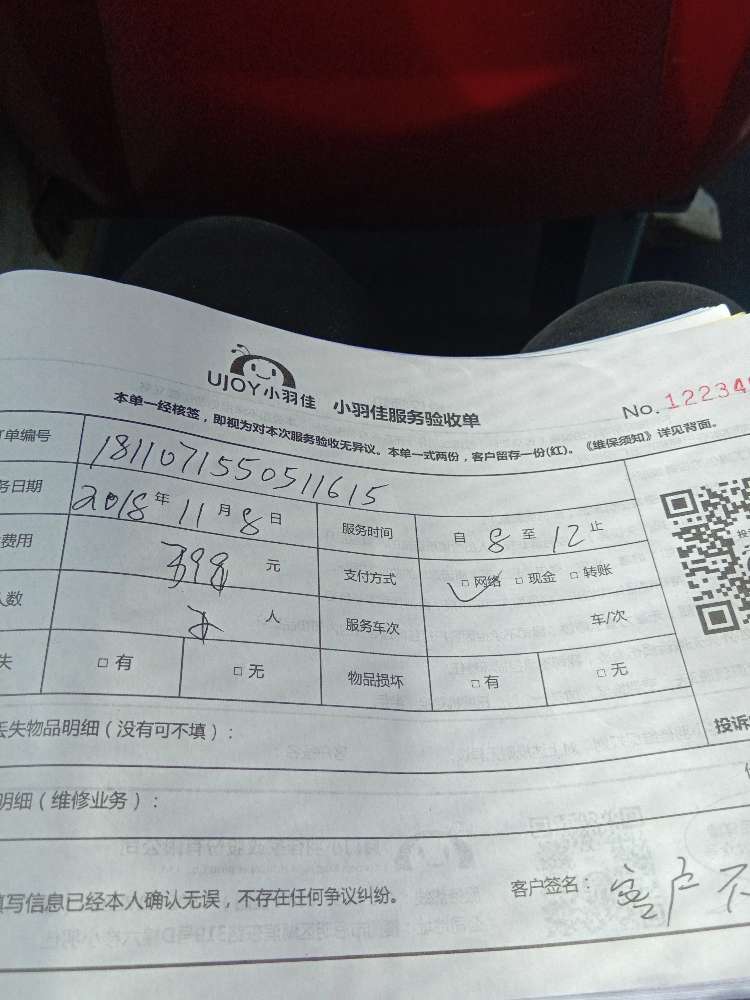 UJOY小羽佳 小羽佳服务验收单
No.12234
本单一经核签，即视为对本次服务验收无异议。本单一式两份，客户留存一份(红)。《维保须知》详见背面。
订单编号 1811071550511615
务日期 2018年11月8日 服务时间 自8至12止
费用 398元 支付方式 □网络 □现金 □转账
人数 人 服务车次 车/次
失 □有 □无 物品损坏 □有 □无
丢失物品明细（没有可不填）：
投诉
明细（维修业务）：
填写信息已经本人确认无误，不存在任何争议纠纷。 客户签名：客户不